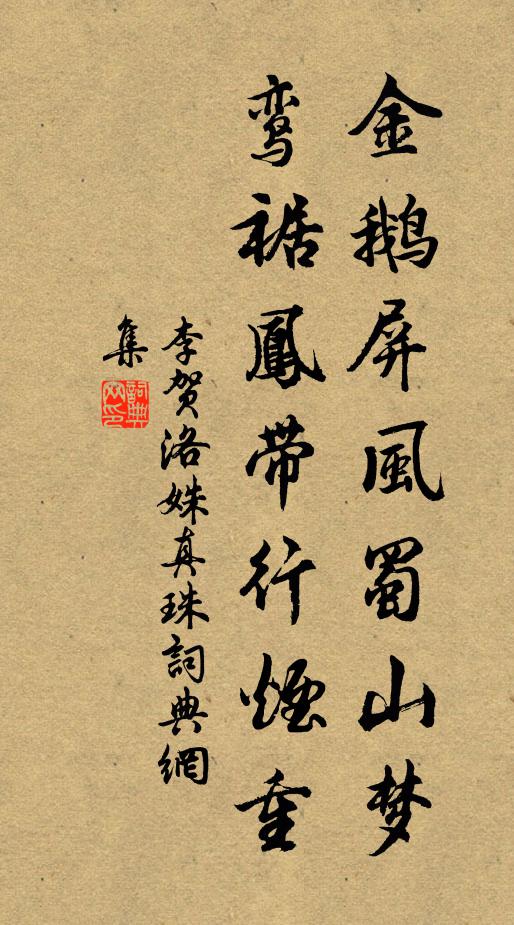 金鹅屏風蜀山梦
鸾裾鳳帶行煙重
李贺洛姝真珠詞典網
集
詞典网印